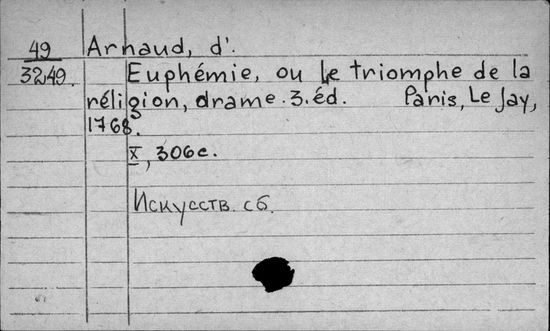 49 Arnaud, d'.
3249. Euphémie, ou le triomphe de la
réligion, drame. 3. éd. Paris, Le Jay,
1768.
X, 306 с.
Искусств. сб.